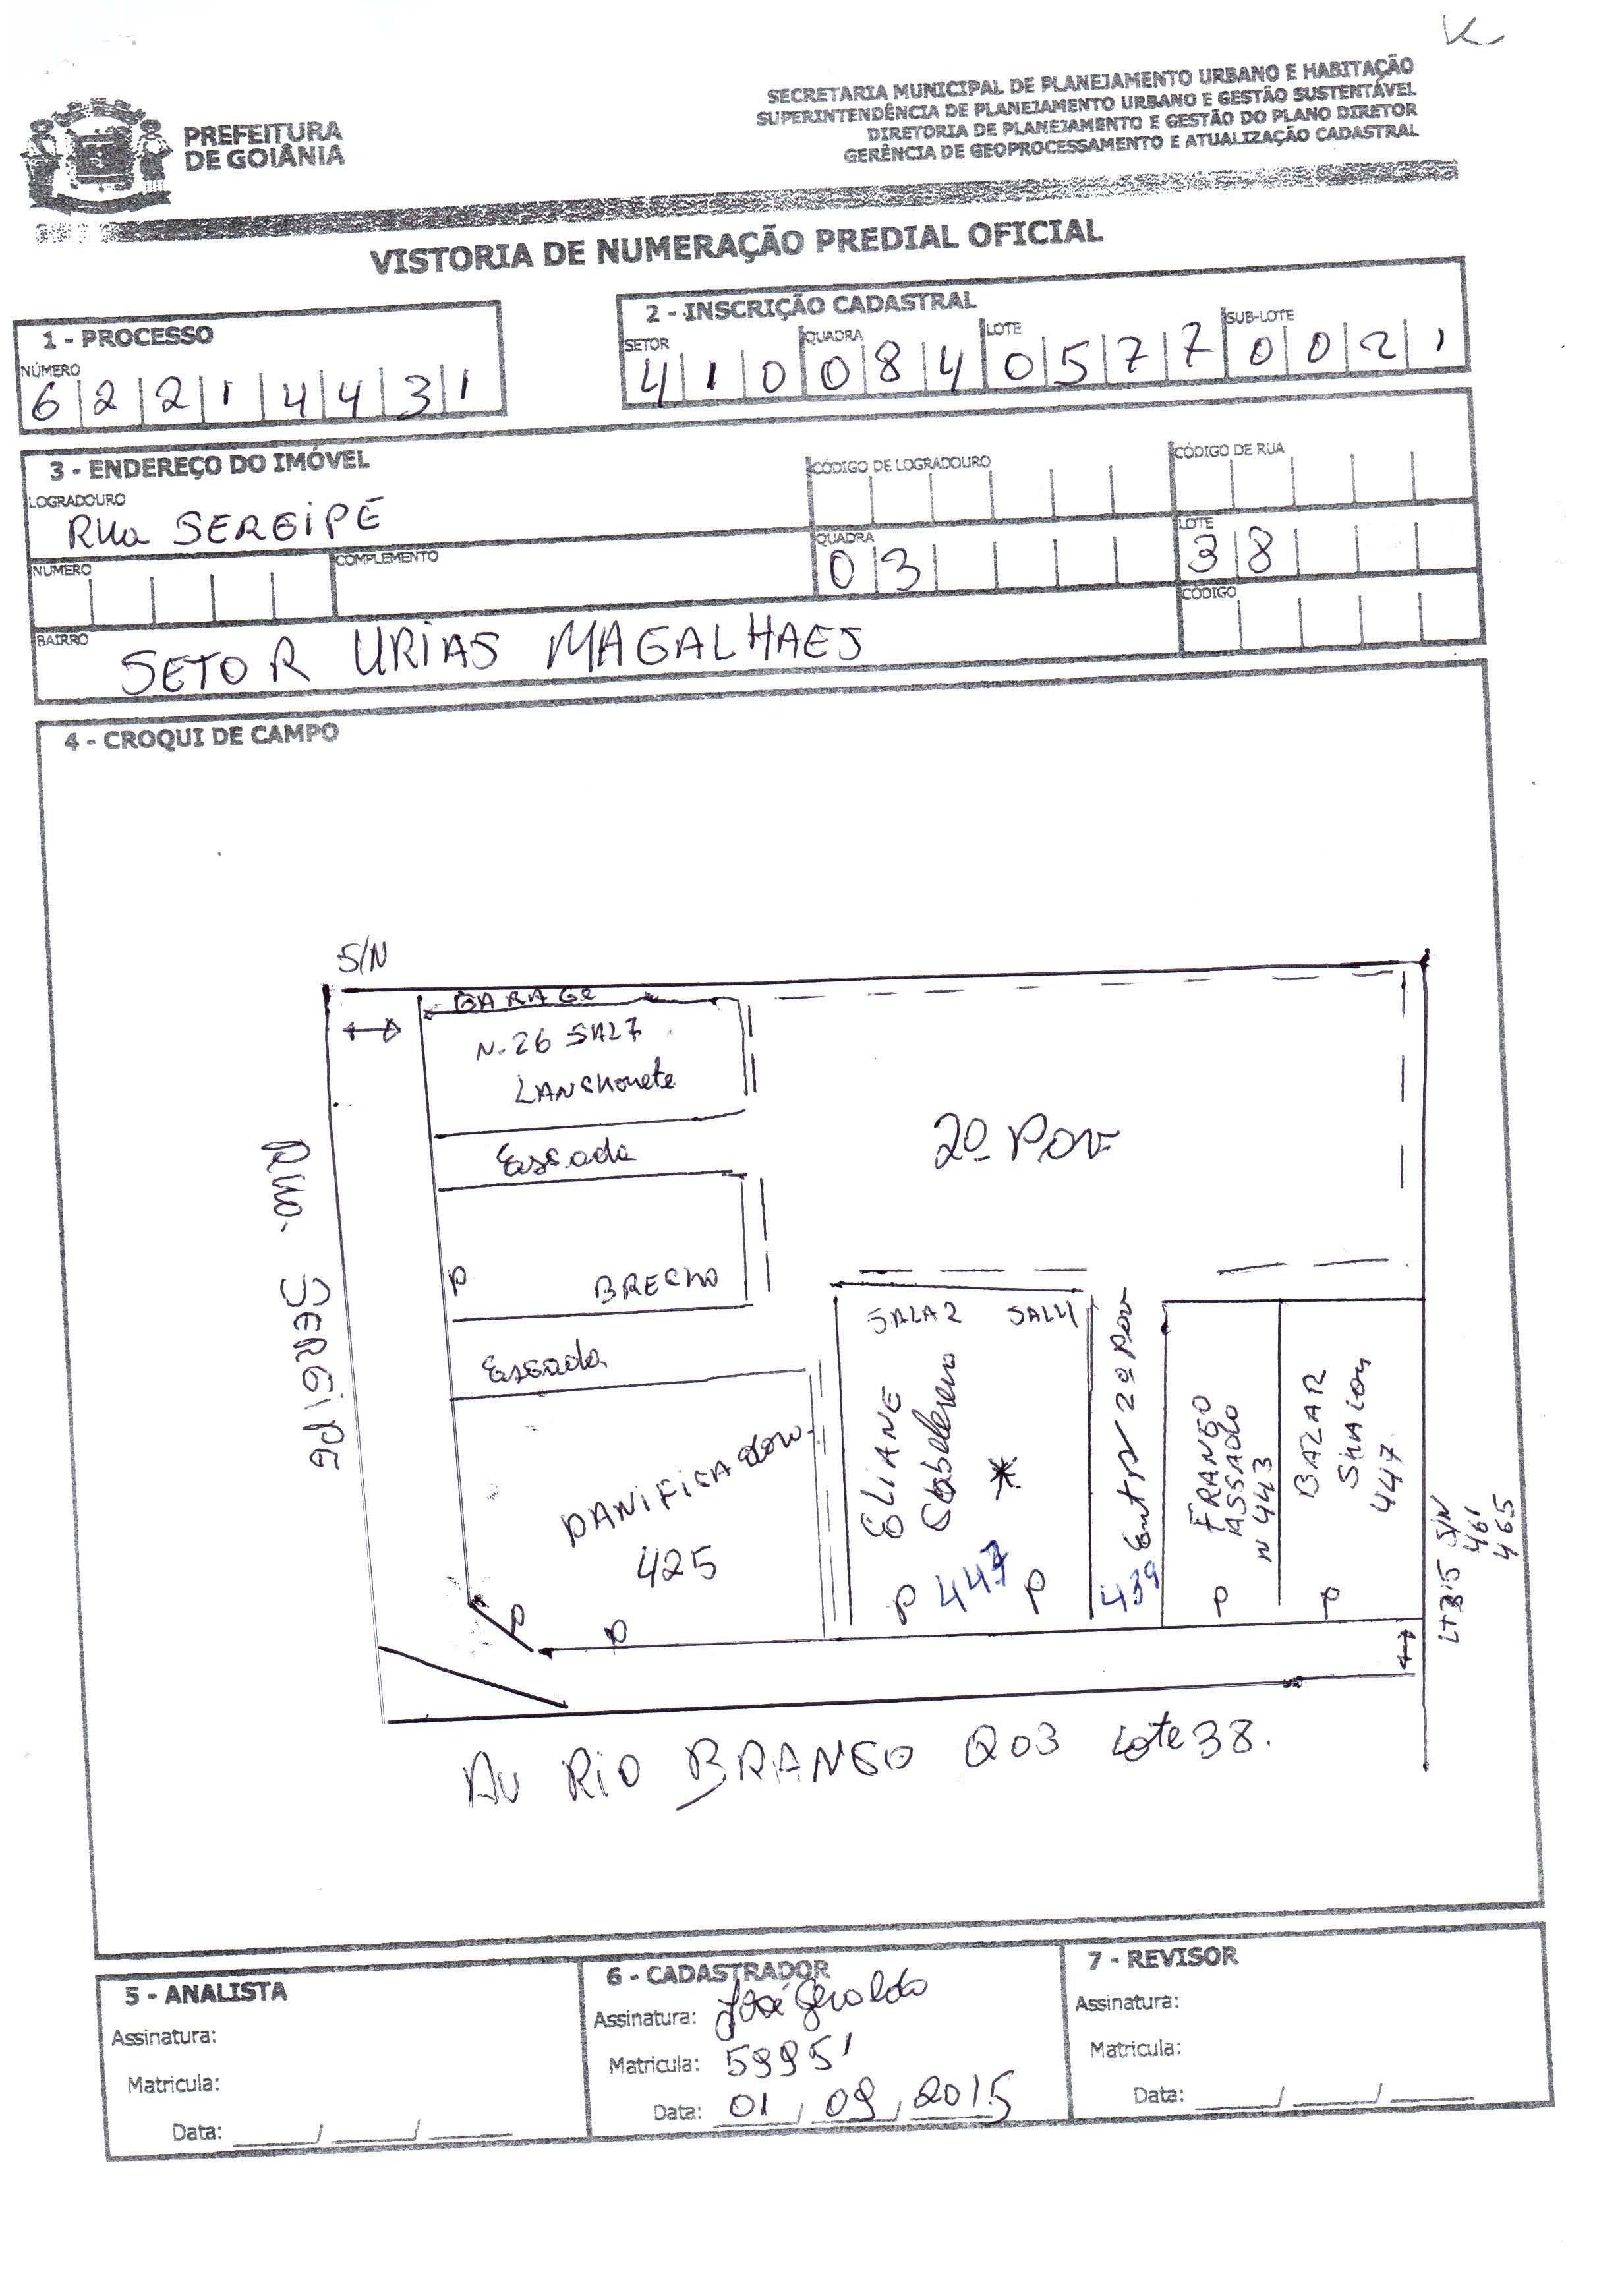 SECRETARIA MUNICIPAL DE PLANEJAMENTO URBANO E HABITAÇÃO
SUPERINTENDÊNCIA DE PLANEJAMENTO URBANO E GESTÃO SUSTENTÁVEL
DIRETORIA DE PLANEJAMENTO E GESTÃO DO PLANO DIRETOR
GERÊNCIA DE GEOPROCESSAMENTO E ATUALIZAÇÃO CADASTRAL
PREFEITURA
DE GOIÂNIA
VISTORIA DE NUMERAÇÃO PREDIAL OFICIAL
1 - PROCESSO
NÚMERO
6 2 2 1 4 4 3 1
2 - INSCRIÇÃO CADASTRAL
SETOR QUADRA LOTE SUB-LOTE
4 1 0 0 8 4 0 5 7 7 0 0 2 1
3 - ENDEREÇO DO IMÓVEL
LOGRADOURO
Rua SERGIPE
CÓDIGO DE LOGRADOURO
CÓDIGO DE RUA
NÚMERO
COMPLEMENTO
QUADRA
0 3
LOTE
3 8
BAIRRO
SETOR URIAS MAGALHAES
CÓDIGO
4 - CROQUI DE CAMPO
S/N
GARAGE
N. 26 SAL 7
LANCHONETE
Escada
2º PAV
P
BRECHO
Escada
SALA 2 SAL 4
PANIFICADORA
425
P
P
ELIANE
Cabelereiro
*
P 447 P
Entr 2º Pav
439
FRANGO
ASSADO
N 443
P
BAZAR
447
P
S/N
461
465
Rua SERGIPE
AV RIO BRANCO Q03 Lote 38.
5 - ANALISTA
Assinatura:
Matricula:
Data: ____/____/____
6 - CADASTRADOR
Assinatura: José Geraldo
Matricula: 59951
Data: 01/09/2015
7 - REVISOR
Assinatura:
Matricula:
Data: ____/____/____